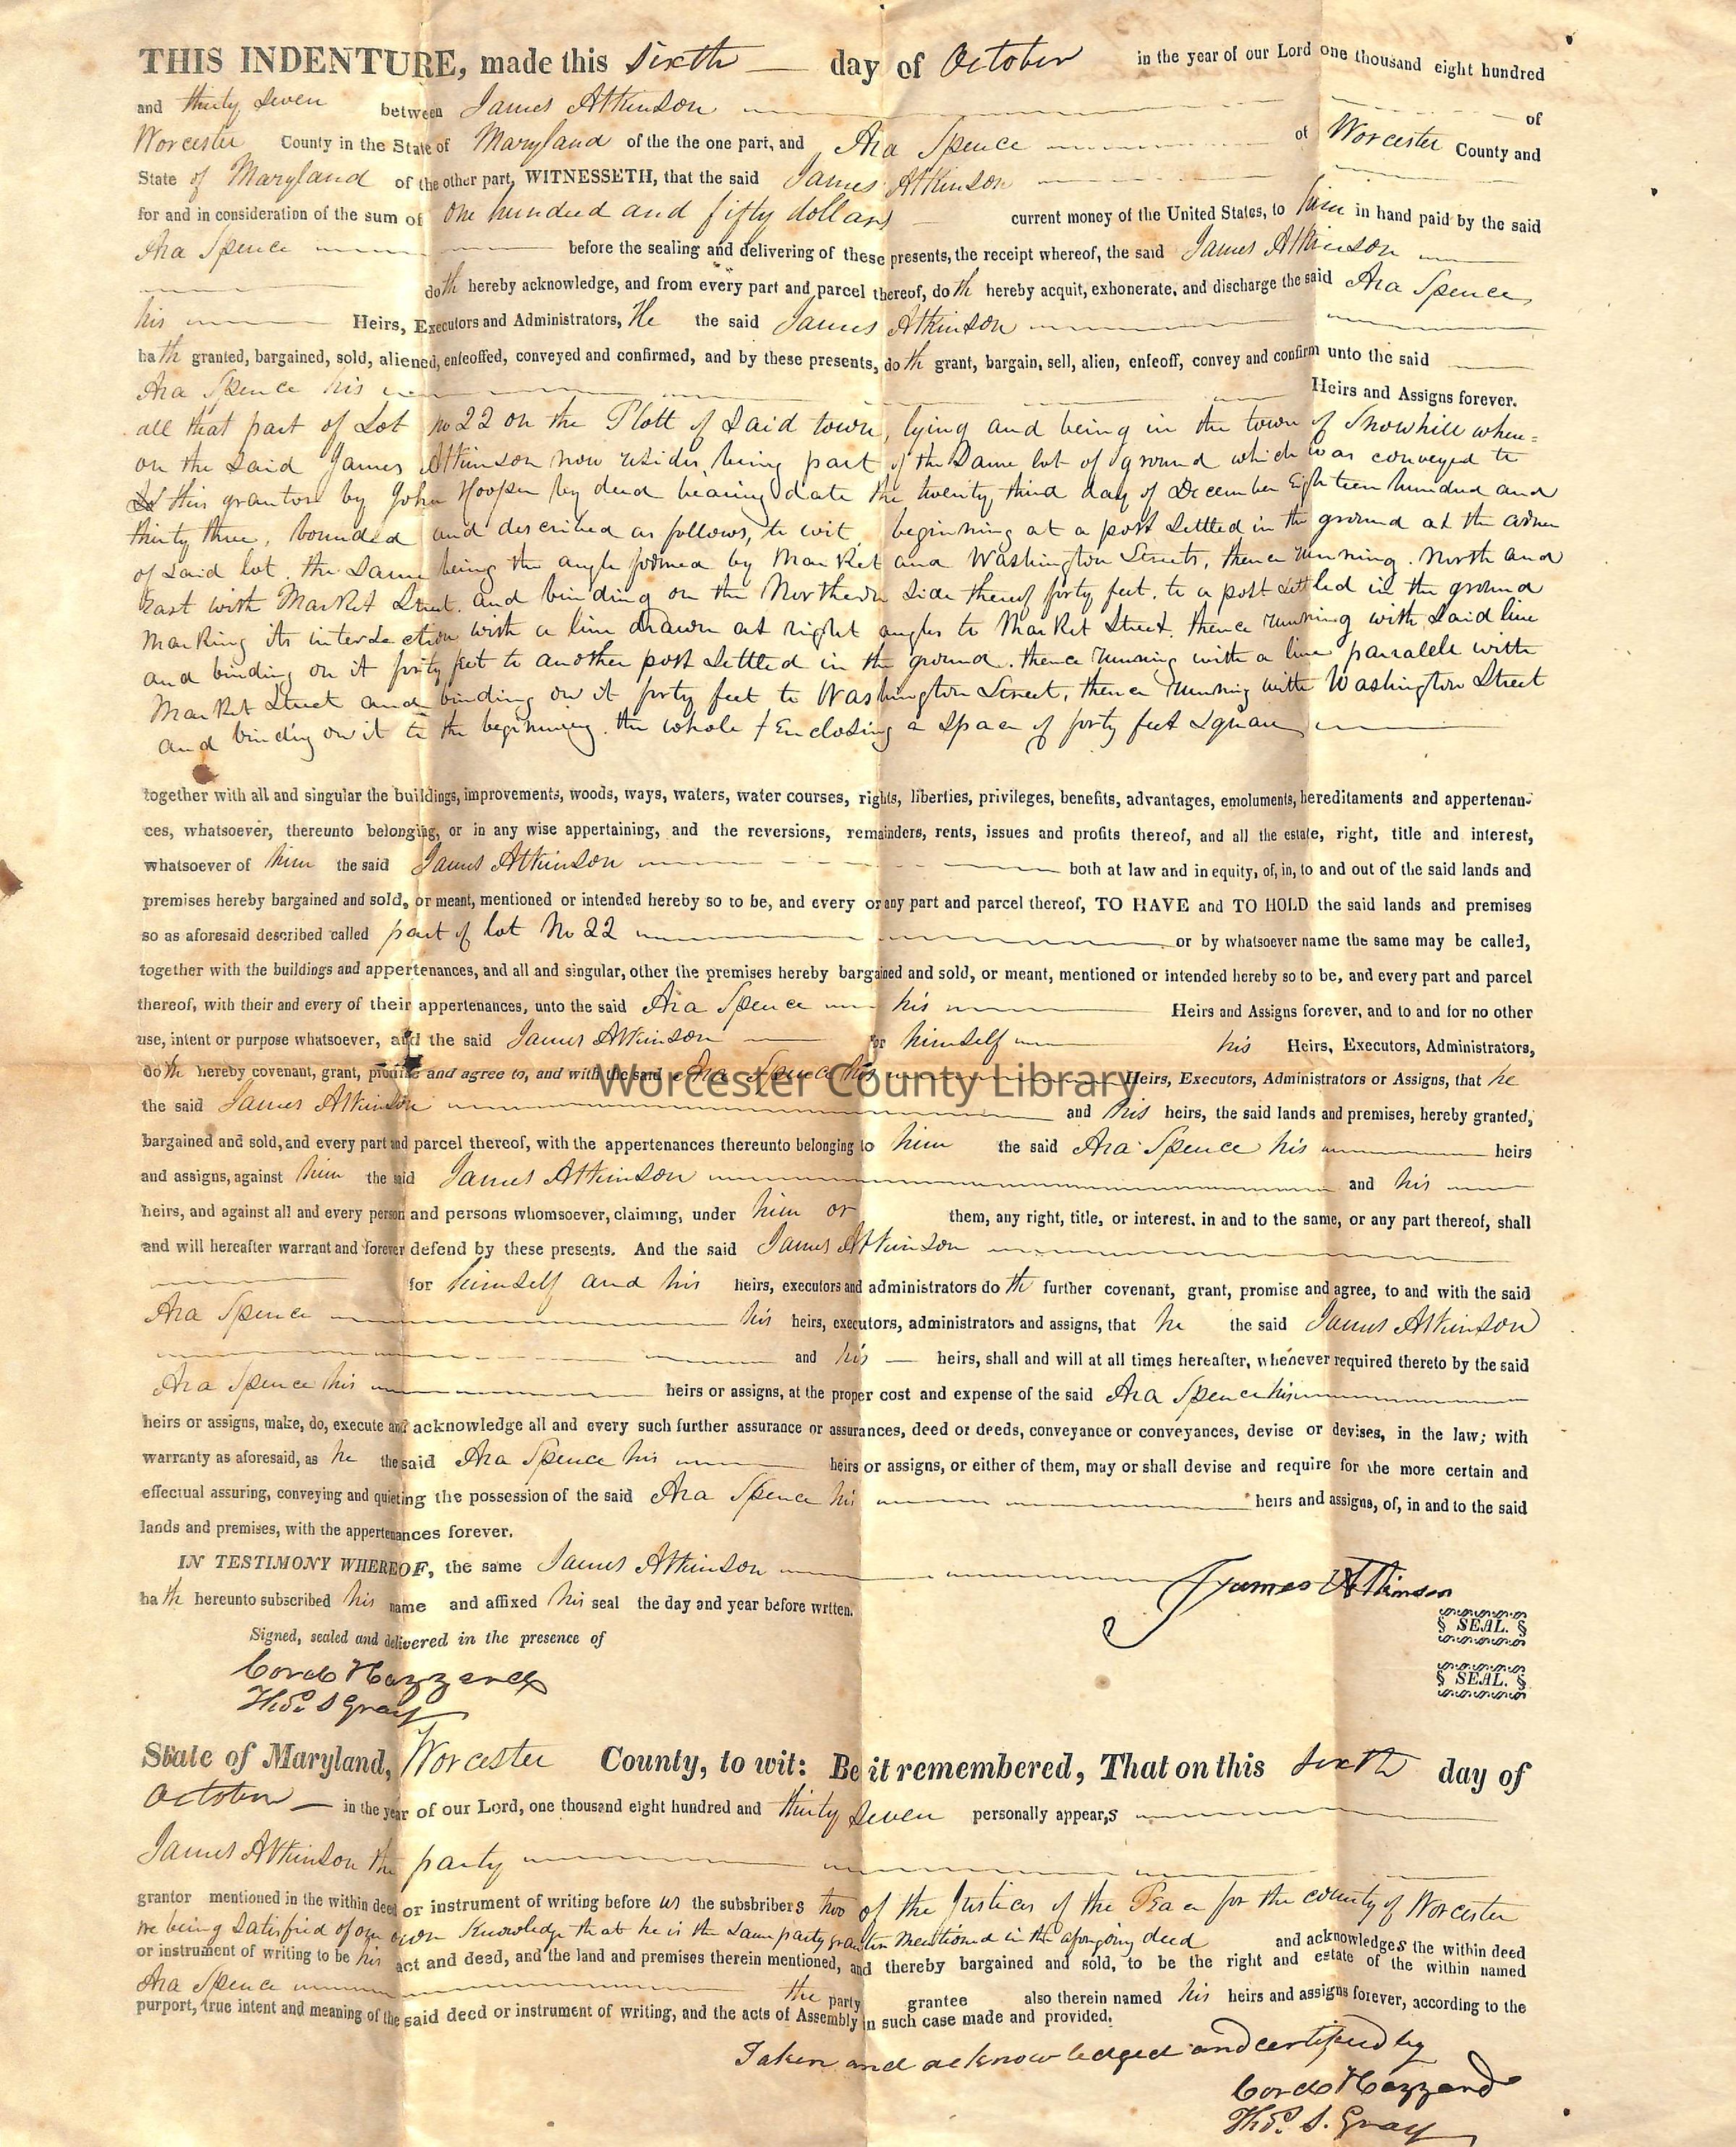 THIS INDENTURE, made this Sixth day of October in the year of our Lord one thousand eight hundred
and thirty Seven between James Atkinson of
Worcester County in the State of Maryland of the the one part, and Ara Spence of Worcester County and
State of Maryland of the other part, WITNESSETH, that the said James Atkinson
for and in consideration of the sum of One hundred and fifty dollars current money of the United States, to him in hand paid by the said
Ara Spence before the sealing and delivering of these presents, the receipt whereof, the said James Atkinson
doth hereby acknowledge, and from every part and parcel thereof, doth hereby acquit, exhonerate, and discharge the said Ara Spence
his Heirs, Executors and Administrators, He the said James Atkinson
hath granted, bargained, sold, aliened, enfeoffed, conveyed and confirmed, and by these presents, doth grant, bargain, sell, alien, enfeoff, convey and confirm unto the said
Ara Spence his Heirs and Assigns forever.
all that part of Lot No 22 on the Plott of Said town, lying and being in the town of Snowhill where=
on the Said James Atkinson now resides, being part of the Same lot of ground which was conveyed to
this grantor by John Hooper by deed bearing date the twenty third day of December Eighteen hundred and
thirty three, bounded and described as follows, to wit, beginning at a post Settled in the ground at the corner
of Said lot, the Same being the angle formed by Market and Washington Streets, thence running North and
East with Market Street, and binding on the Northern Side thereof forty feet, to a post settled in the ground
marking its intersection with a line drawn at right angles to Market Street, thence running with Said line
and binding on it forty feet to another post Settled in the ground, thence running with a line parralele with
Market Street and binding on it forty feet to Washington Street, thence running with Washington Street
and binding on it to the beginning, the whole Enclosing a Space of forty feet Square
together with all and singular the buildings, improvements, woods, ways, waters, water courses, rights, liberties, privileges, benefits, advantages, emoluments, hereditaments and appertenan-
ces, whatsoever, thereunto belonging, or in any wise appertaining, and the reversions, remainders, rents, issues and profits thereof, and all the estate, right, title and interest,
whatsoever of him the said James Atkinson both at law and in equity, of, in, to and out of the said lands and
premises hereby bargained and sold, or meant, mentioned or intended hereby so to be, and every or any part and parcel thereof, TO HAVE and TO HOLD the said lands and premises
so as aforesaid described called part of lot No 22 or by whatsoever name the same may be called,
together with the buildings and appertenances, and all and singular, other the premises hereby bargained and sold, or meant, mentioned or intended hereby so to be, and every part and parcel
thereof, with their and every of their appertenances, unto the said Ara Spence his Heirs and Assigns forever, and to and for no other
use, intent or purpose whatsoever, and the said James Atkinson for himself his Heirs, Executors, Administrators,
doth hereby covenant, grant, promise and agree to, and with the said Ara Spence his Heirs, Executors, Administrators or Assigns, that he
Worcester County Library
the said James Atkinson and his heirs, the said lands and premises, hereby granted,
bargained and sold, and every part and parcel thereof, with the appertenances thereunto belonging to him the said Ara Spence his heirs
and assigns, against him the said James Atkinson and his
heirs, and against all and every person and persons whomsoever, claiming, under him or them, any right, title, or interest, in and to the same, or any part thereof, shall
and will hereafter warrant and forever defend by these presents. And the said James Atkinson
for himself and his heirs, executors and administrators doth further covenant, grant, promise and agree, to and with the said
Ara Spence his heirs, executors, administrators and assigns, that he the said James Atkinson
and his heirs, shall and will at all times hereafter, whenever required thereto by the said
Ara Spence his heirs or assigns, at the proper cost and expense of the said Ara Spence his
heirs or assigns, make, do, execute and acknowledge all and every such further assurance or assurances, deed or deeds, conveyance or conveyances, devise or devises, in the law; with
warranty as aforesaid, as he the said Ara Spence his heirs or assigns, or either of them, may or shall devise and require for the more certain and
effectual assuring, conveying and quieting the possession of the said Ara Spence his heirs and assigns, of, in and to the said
lands and premises, with the appertenances forever.
IN TESTIMONY WHEREOF, the same James Atkinson
hath hereunto subscribed his name and affixed his seal the day and year before wrtten.
James Atkinson
SEAL.
Signed, sealed and delivered in the presence of
SEAL.
Cord Hazzard
Thos. S Gray
State of Maryland, Worcester County, to wit: Be it remembered, That on this sixth day of
October in the year of our Lord, one thousand eight hundred and thirty Seven personally appears
James Atkinson the party
grantor mentioned in the within deed or instrument of writing before us the subsbribers two of the Justices of the Peace for the county of Worcester
we being Satisfied of our own Knowledge that he is the Same party grantor Mentioned in the aforegoing deed and acknowledges the within deed
or instrument of writing to be his act and deed, and the land and premises therein mentioned, and thereby bargained and sold, to be the right and estate of the within named
Ara Spence the party grantee also therein named his heirs and assigns forever, according to the
purport, true intent and meaning of the said deed or instrument of writing, and the acts of Assembly in such case made and provided.
Taken and acknowledged and certified by
Cord Hazzard
Thos. S. Gray